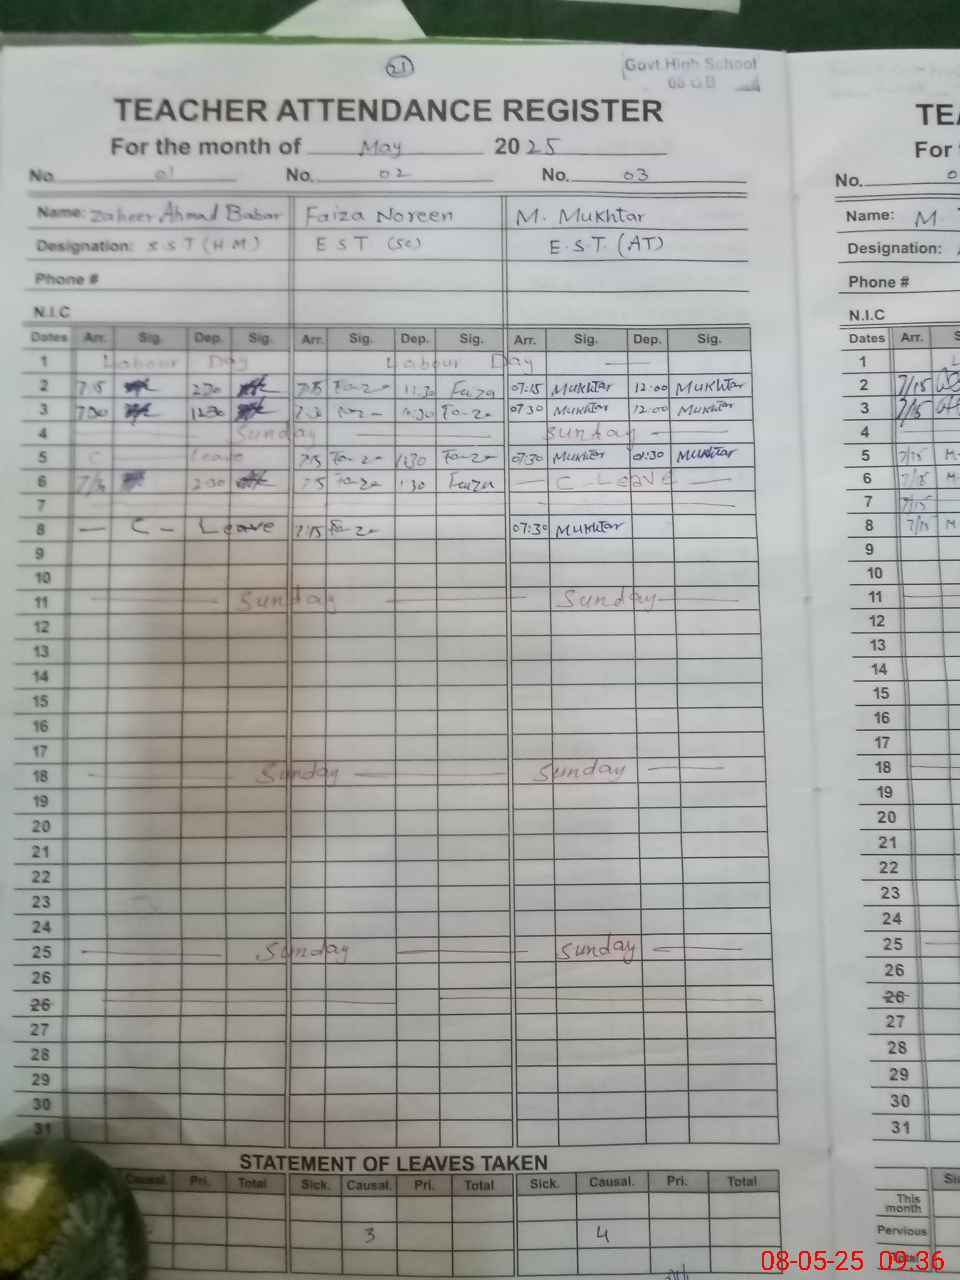 21
Govt.High School
TEACHER ATTENDANCE REGISTER
For the month of May 2025
No. 01 No. 02 No. 03
Name: Zaheer Ahmad Babar Faiza Noreen M. Mukhtar
Designation: S.S.T (H M) E S T (Sc) E.S.T. (AT)
Phone #
N.I.C
Dates Arr. Sig. Dep. Sig. Arr. Sig. Dep. Sig. Arr. Sig. Dep. Sig.
1 Labour Day Labour Day
2 7:15 2:30 7:15 11:30 Faiza 07:15 Mukhtar 12:00 Mukhtar
3 7:30 12:30 07:30 Mukhtar 12:00 Mukhtar
4 Sunday Sunday
5 C Leave 7:15 1:30 07:30 Mukhtar 01:30 Mukhtar
6 2:30 1:30 Faiza C Leave
7
8 C - Leave 7:15 07:30 Mukhtar
9
10
11 Sunday Sunday
12
13
14
15
16
17
18 Sunday Sunday
19
20
21
22
23
24
25 Sunday Sunday
26
26
27
28
29
30
31
STATEMENT OF LEAVES TAKEN
Causal. Pri. Total Sick. Causal. Pri. Total Sick. Causal. Pri. Total
3 4
TEA
For
No.
Name: M
Designation:
Phone #
N.I.C
Dates Arr. S
1
2 7/15
3 7/15
4
5 7/15 M
6 7/15 M
7 7/15
8 7/15 M
9
10
11
12
13
14
15
16
17
18
19
20
21
22
23
24
25
26
26
27
28
29
30
31
This month
Pervious
08-05-25 09:36